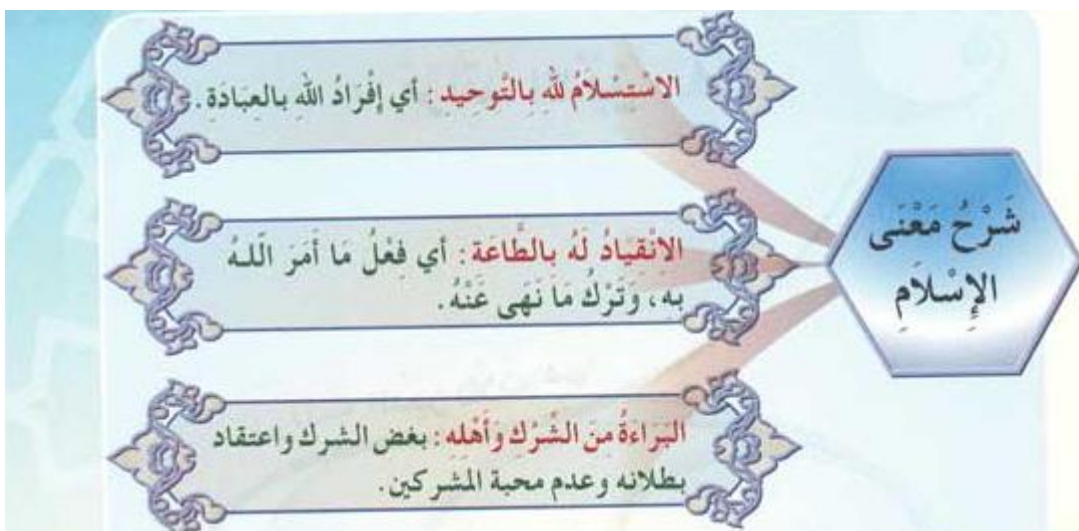 الاسْتِسْلَامُ للهِ بِالتَّوحِيدِ : أي إفْرَادُ اللهِ بالعِبَادَةِ .
شَرْحُ مَعْنَى
الإِسْلَامِ
الانْقِيادُ لَهُ بالطَّاعَة : أي فِعْلُ مَا أَمَرَ اللهُ
به ، وَتَرْكُ مَا نَهَى عَنْهُ .
البَرَاءةُ مِنَ الشِّرْكِ وَأَهْلِهِ : بغض الشرك واعتقاد
بطلانه وعدم محبة المشركين .